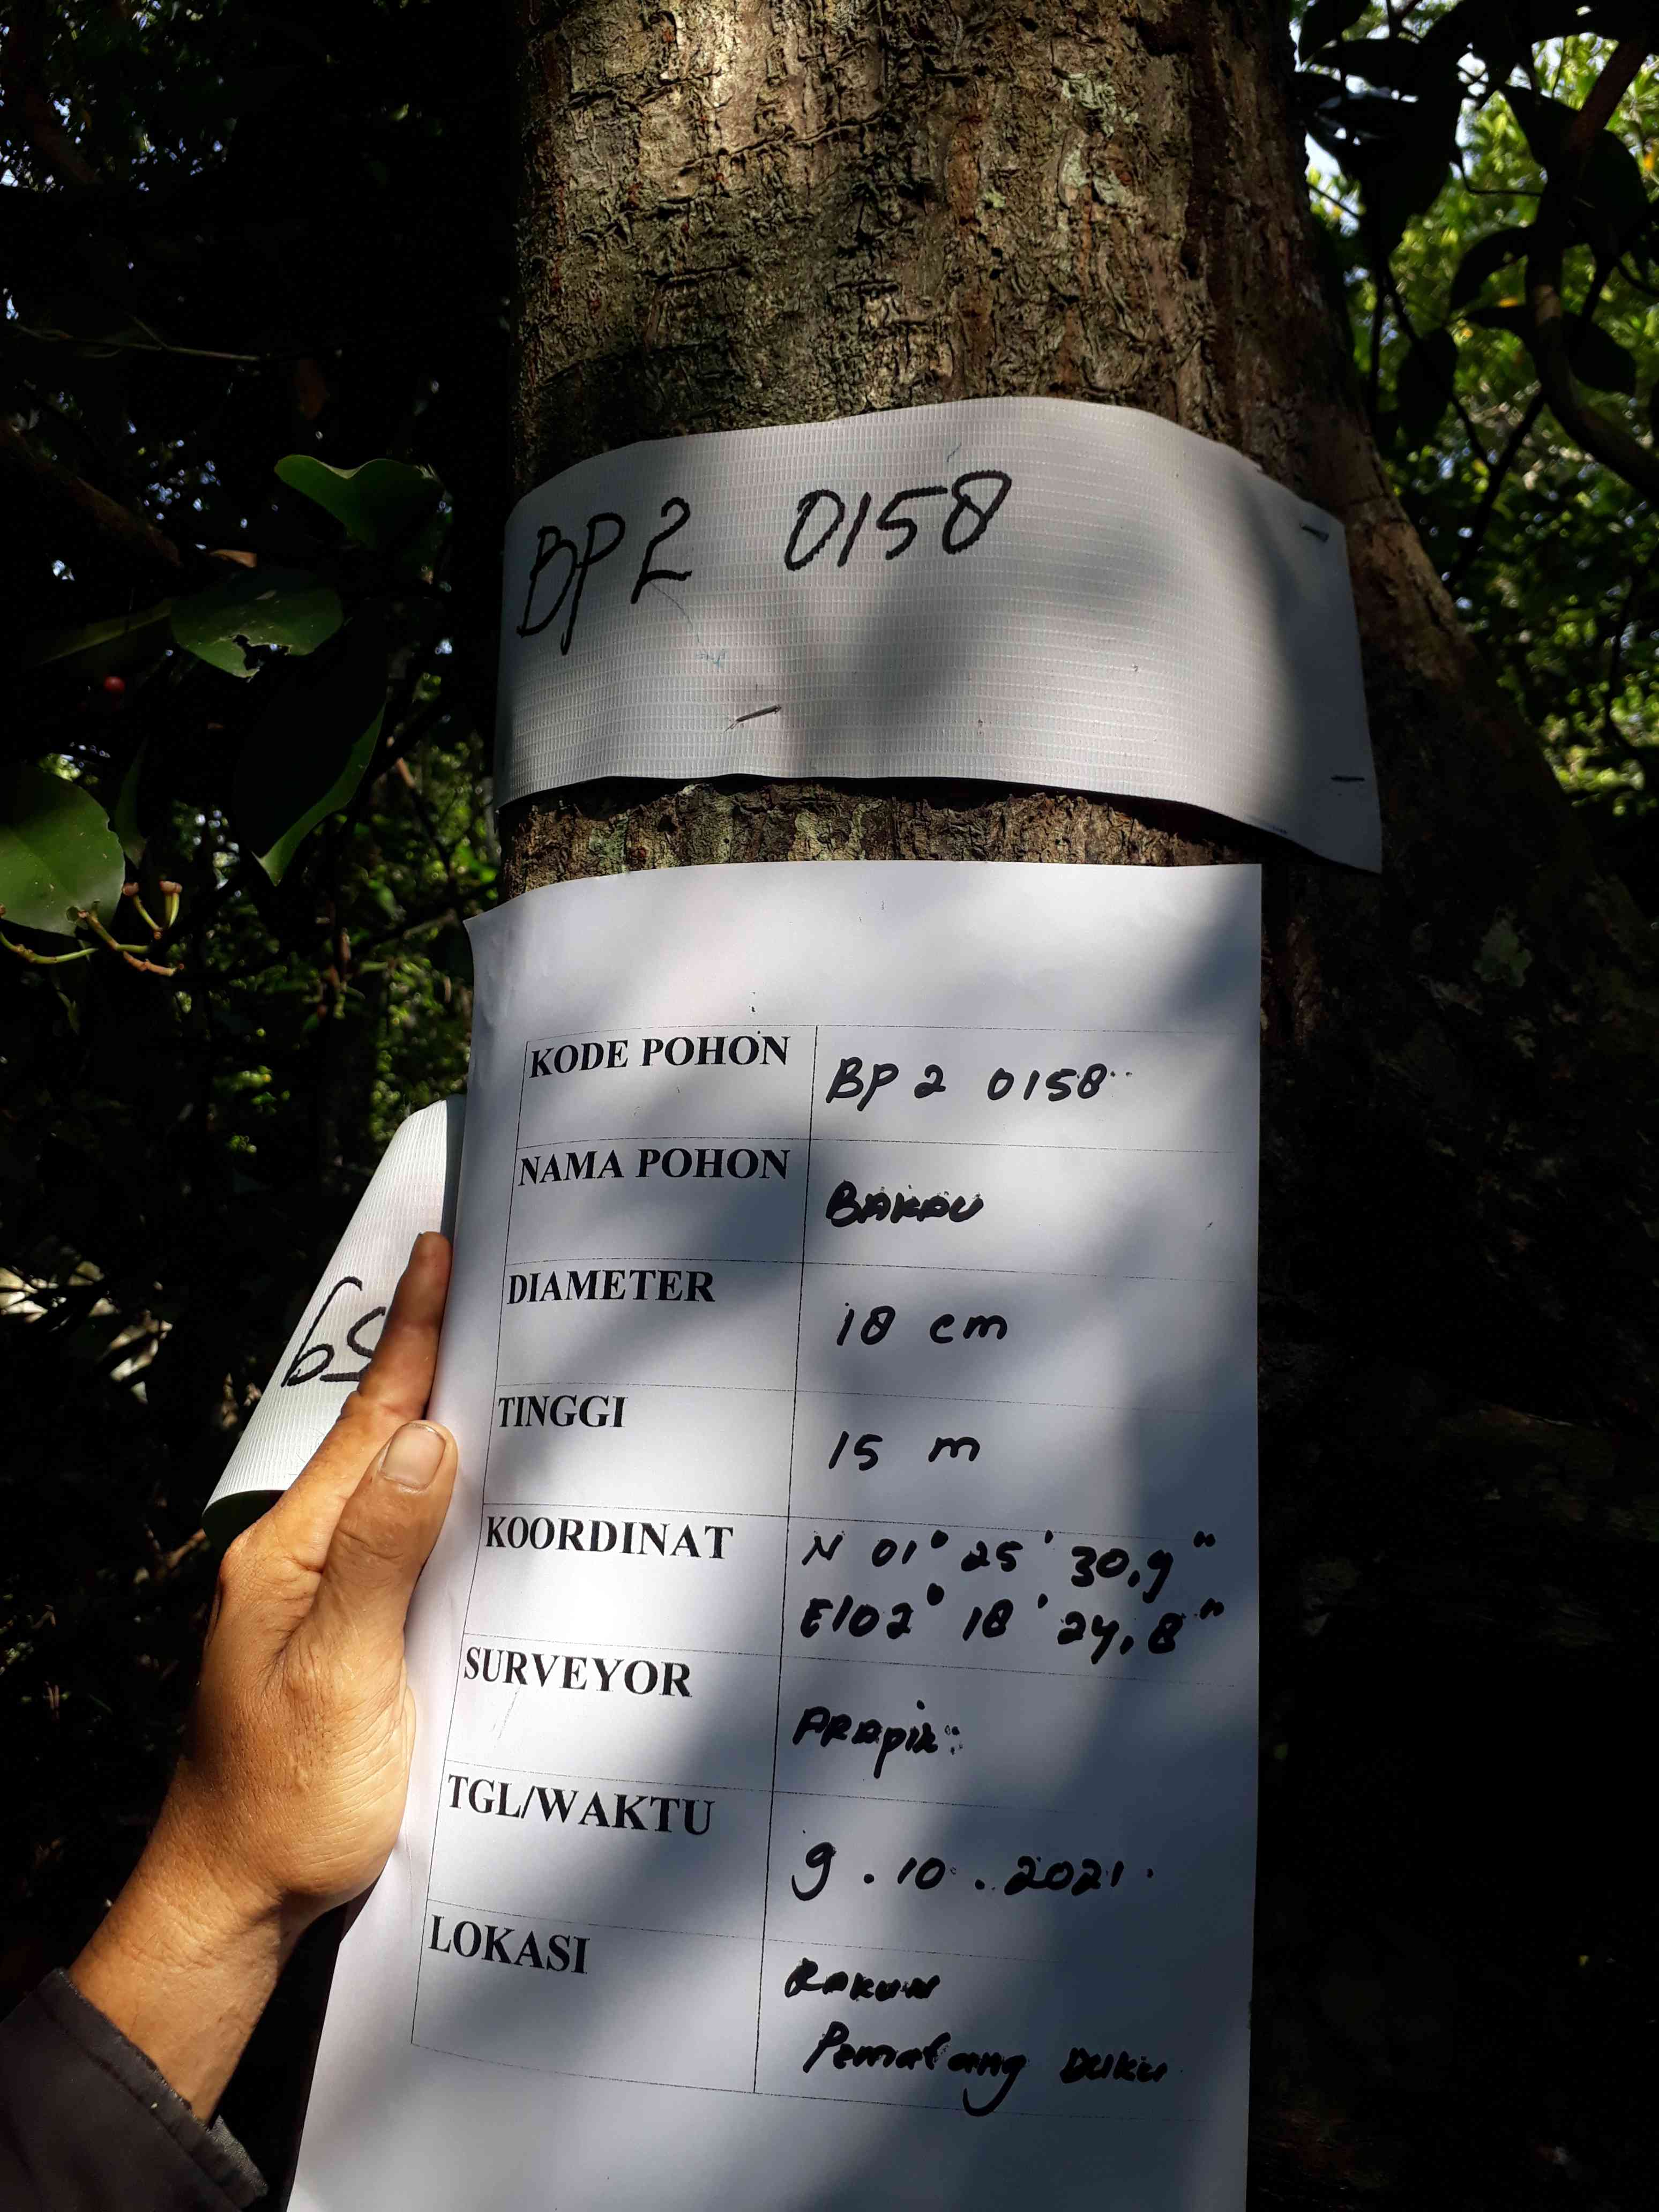 BP2 0158
KODE POHON BP 2 0158
NAMA POHON BAKAU
DIAMETER 18 cm
TINGGI 15 m
KOORDINAT N 01° 25' 30,9"
E102° 18' 24,8"
SURVEYOR
TGL/WAKTU 9.10.2021
LOKASI
Pematang Duku